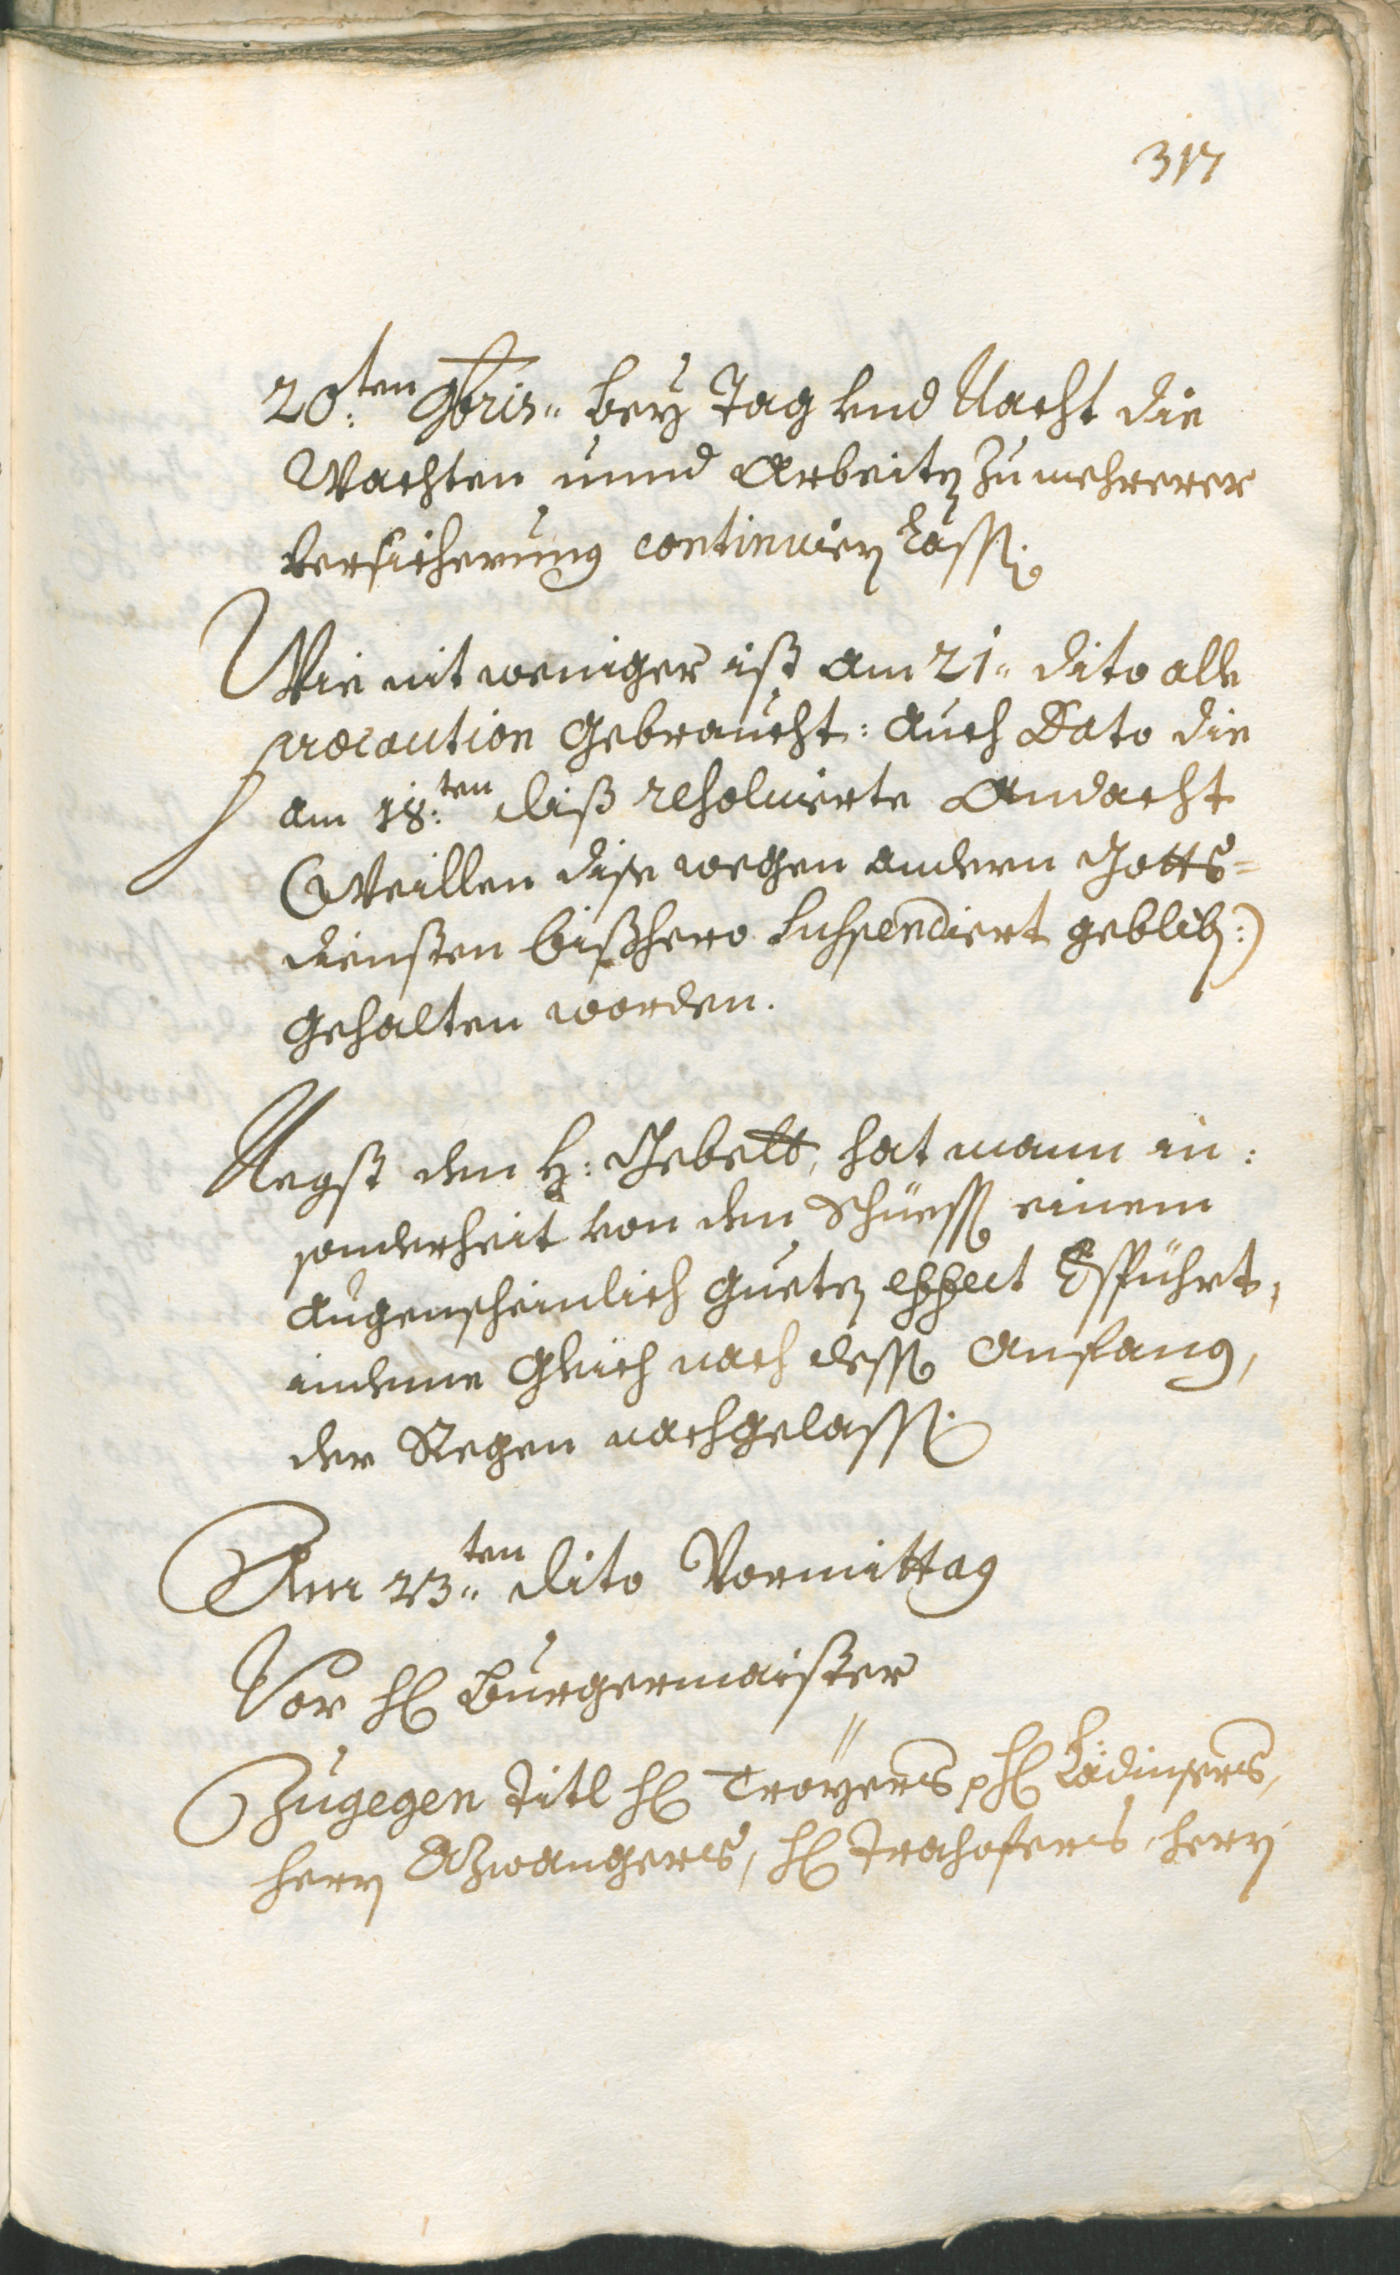 317
20.ten 9bris„ bey Tag vnd Nacht die
Wachten unnd Arbeiten zu mehrerer
versicherung continuiern lassen.
Wie nit weniger ist am 21„ dito alle
praecaution gebraucht: auch Dato die
am 18.ten diß resoluierte Andacht
(Weillen dise wegen andern Gotts=
diensten bißhero suspendiert gebliben:)
gehalten worden.
Negst den H: Gebett, hat mann in:
sonderheit von den Schüessen einem
augenscheinlich gueten effect gspührt,
indeme gleich nach dessen Anfang,
der Regen nachgelassen.
Am 23„ten dito Vormittag
Vor H Burgermaister
Zugegen Titl H Troyers, H Lädinsers,
Herrn Azwangers, H Trahofers, Herrn